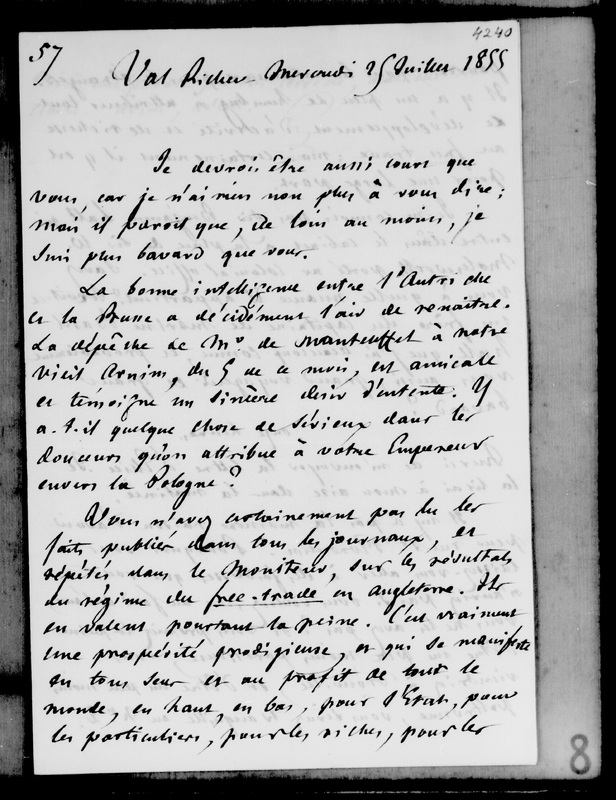 4240
57
Val Richer - Mercredi 25 Juillet 1855
Je devrois être aussi court que
vous, car je n'ai rien non plus à vous dire ;
mais il paroit que, de loin au moins, je
suis plus bavard que vous.
La bonne intelligence entre l'Autriche
et la Prusse a décidément l'air de renaître.
La dépêche de Mr de Manteuffel à notre
vieil Arnim, du 5 de ce mois, est amicale
et témoigne un sincère desir d'entente. Y
a-t-il quelque chose de sérieux dans les
douceurs qu'on attribue à votre Empereur
envers la Pologne ?
Vous n'avez certainement pas lu les
faits publiés dans tous les journaux, et
répétés dans le Moniteur, sur les résultats
du régime du free-trade en Angleterre. Ils
en valent pourtant la peine. C'est vraiment
une prospérité prodigieuse, et qui se manifeste
en tous sens et au profit de tout le
monde, en haut, en bas, pour l'Etat, pour
les particuliers, pour les riches, pour les
8